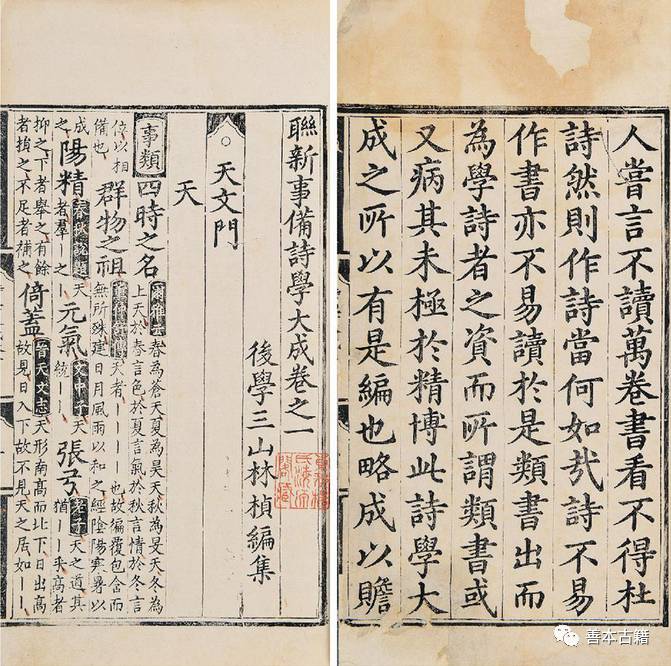 人嘗言不讀萬卷書看不得杜
詩然則作詩當何如㢤詩不易
作書亦不易讀於是類書出而
為學詩者之資而所謂類書或
又病其未極於精博此詩學大
成之所以有是編也略成以贍
聯新事備詩學大成卷之一
後學三山林楨編集
天文門
天
事類 四時之名 爾雅云 春為蒼天夏為昊天秋為旻天冬為上天於春言色於夏言氣於秋言情於冬言
位以相備也 群物之祖 天者｜｜｜｜也故徧覆包含而無所殊建日月風雨以和之經陰陽寒暑以
成之 陽精 天者羣｜之｜ 元氣 文中子 天統｜｜ 張弓 老子 天之道其猶｜｜乎高者
抑之下者舉之有餘者損之不足者補之 倚蓋 晉天文志 天形南高而北下日出高故見日入下故不見天之居如｜｜
善本古籍